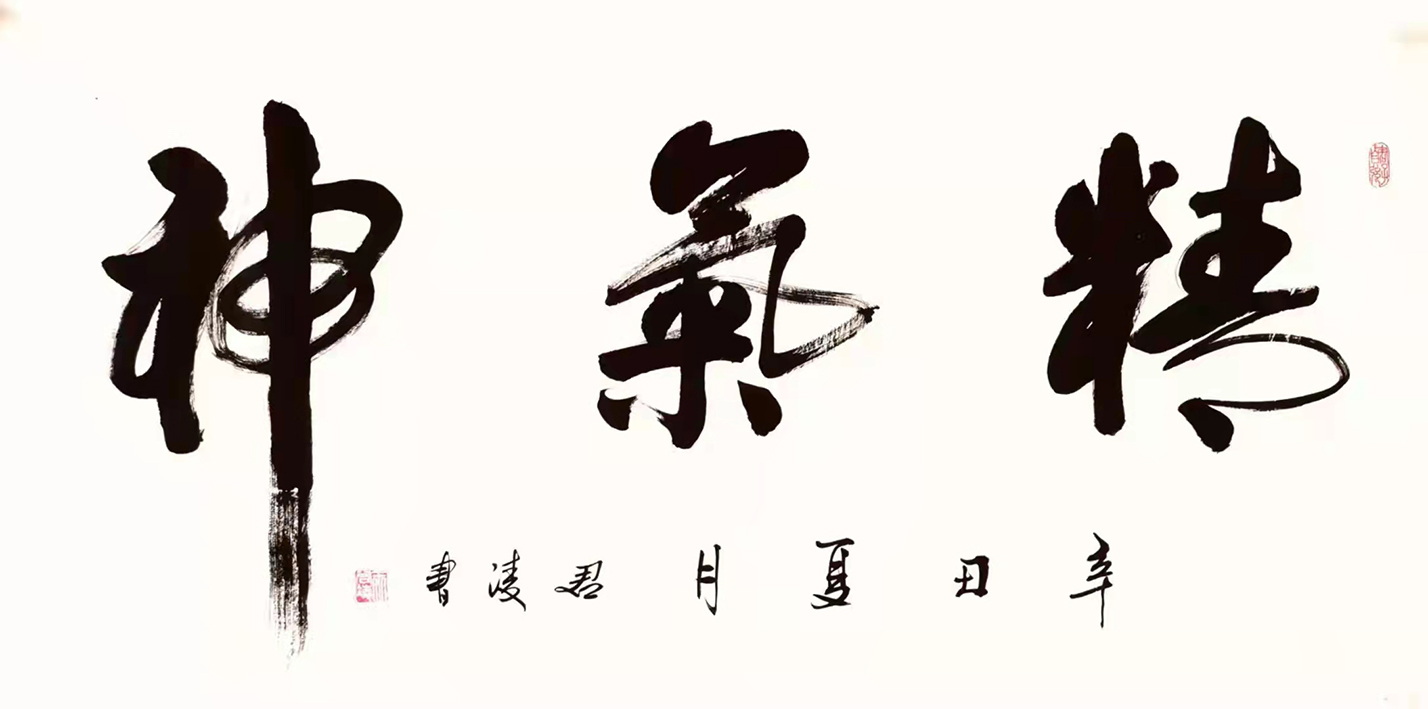 精氣神
辛丑夏月君凌書